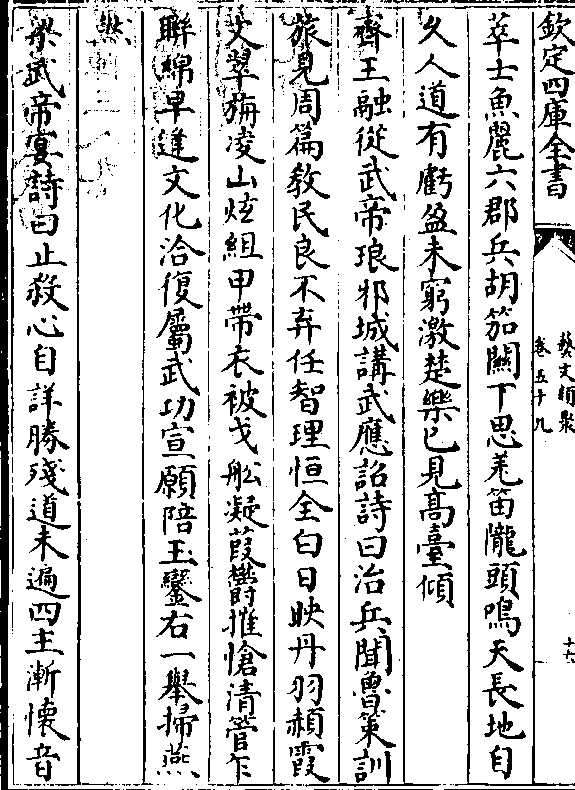 欽定四庫全書
藝文類聚
卷五十九
十六
萃士魚麗六郡兵胡笳關下思羌笛隴頭鳴天長地自
久人道有虧盈未窮激楚樂已見高臺傾
齊王融從武帝琅邪城講武應詔詩曰治兵聞魯策訓
旅見周篇教民良不弃任智理恒全白日映丹羽頳霞
文翠旃凌山炫組甲帶衣被戈船凝葭鬱摧愴清管乍
聯綿早逢文化洽復屬武功宣願陪玉鑾右一舉掃燕
然
梁武帝宴詩曰止殺心自詳勝殘道未遍四主漸懷音